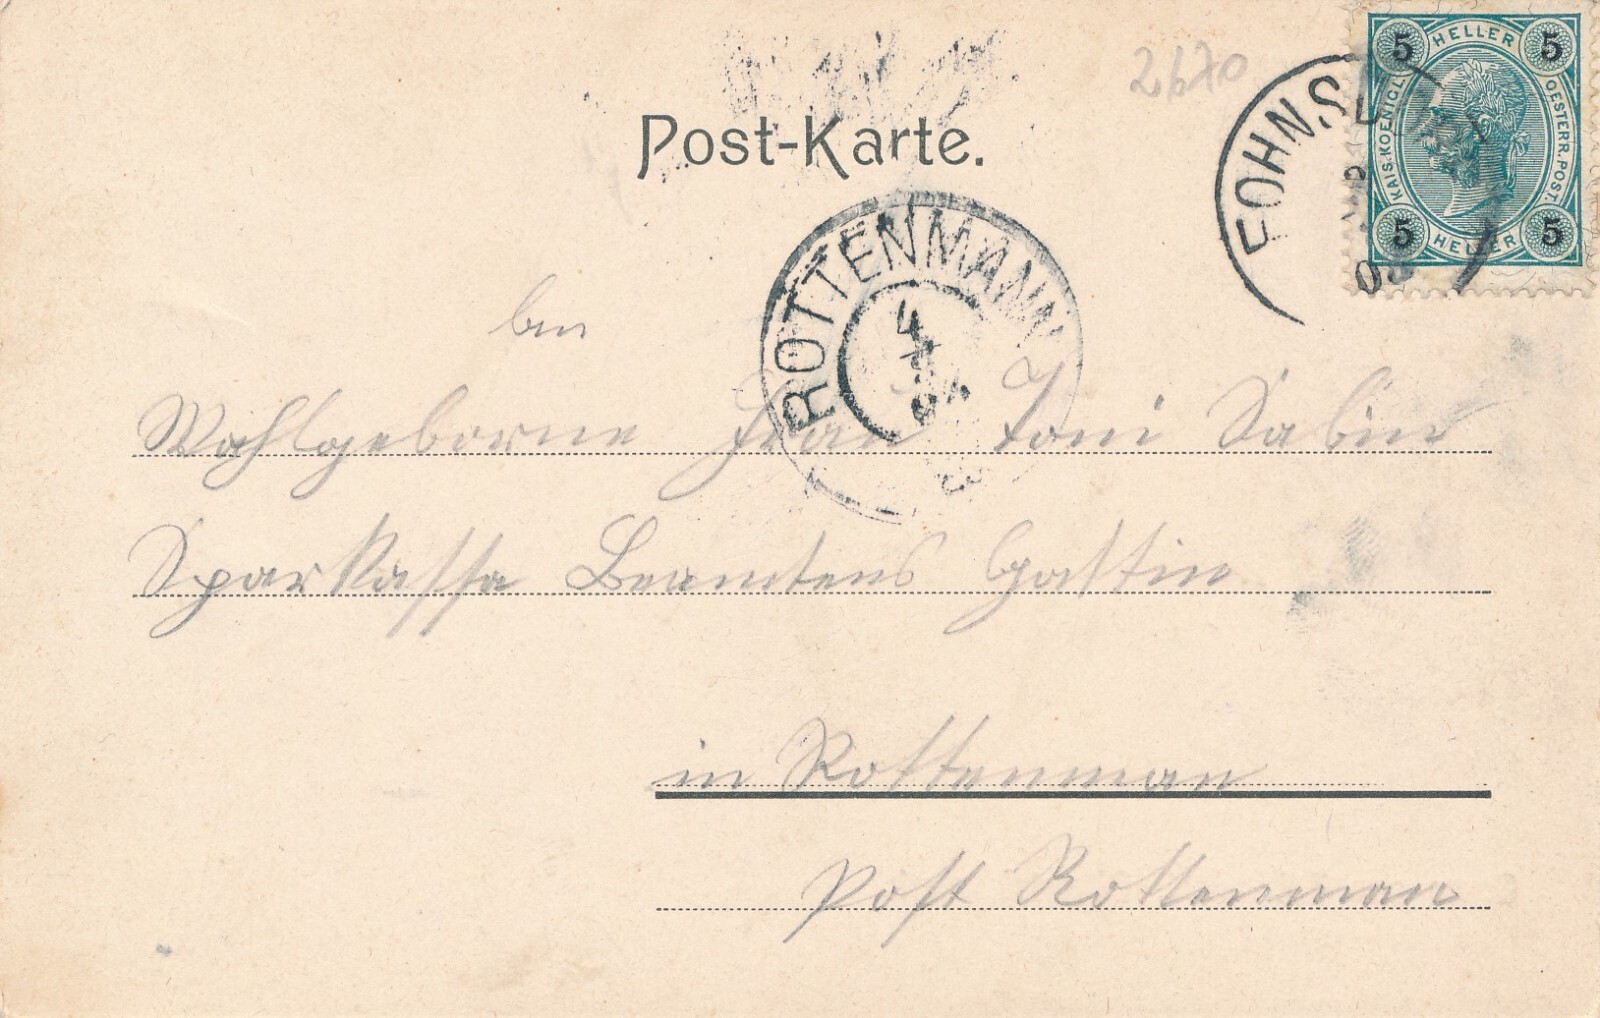 2670
5 HELLER 5
KAIS. KOENIGL. OESTERR. POST.
5 HELLER 5
FOHNSD
Post-Karte.
ROTTENMANN
4
Wohlgeborne Frau Toni Sabin
Sparkassa Beamtens Gattin
in Rottenman
Post Rottenman